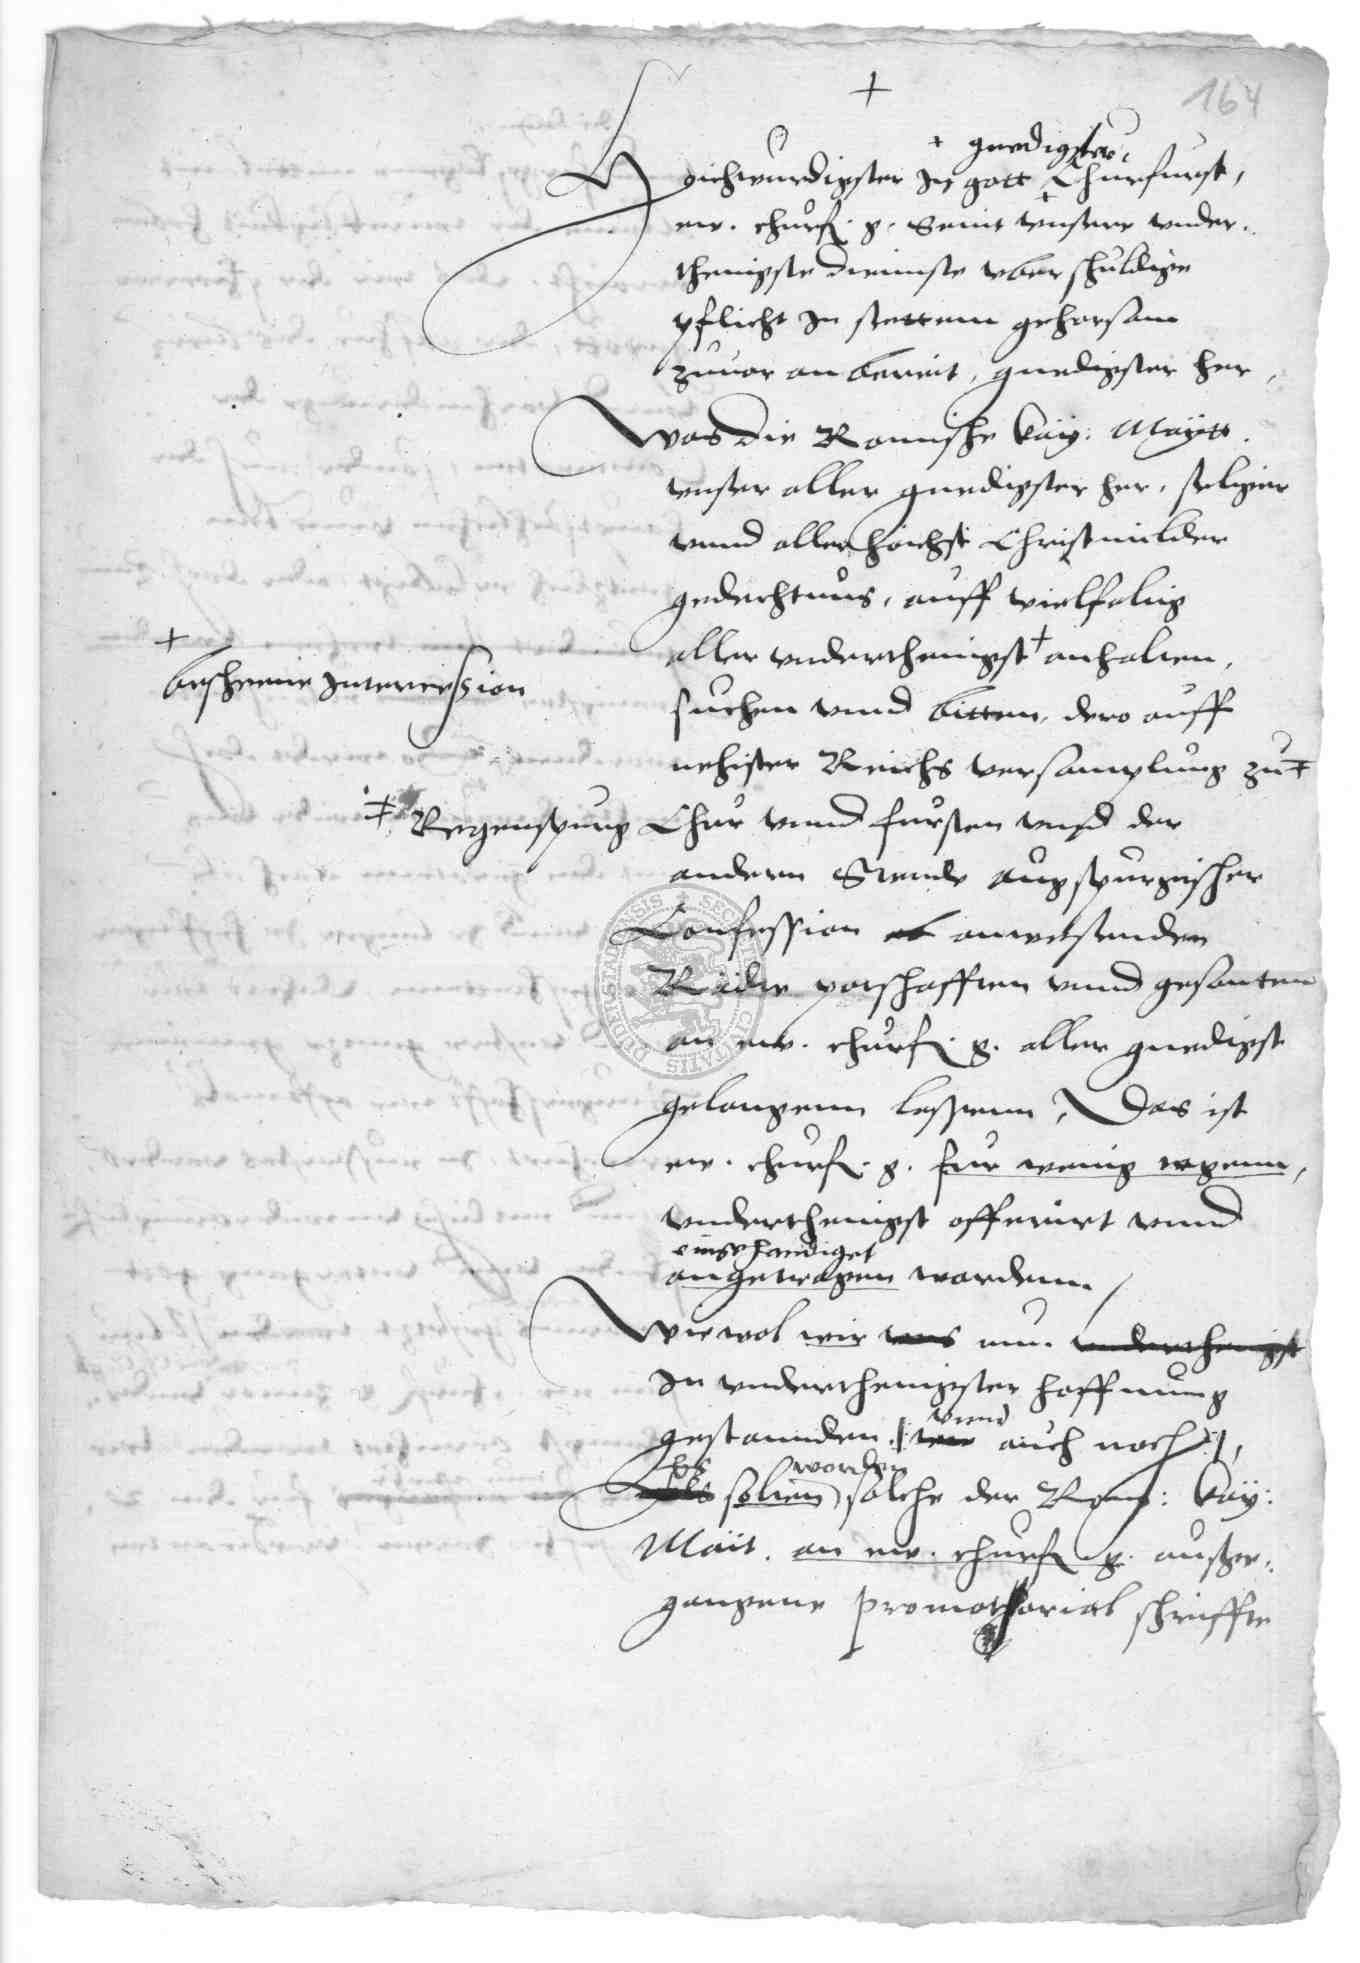 +
164
+ gnedigster,
Hoichwurdigster In gott Churfurst,
ew. churf. g. Seint unsere under-
thenigste diennste uber schuldige
pflicht In stettem gehorsam
zuvor an bereit, gnedigster her,
Was die Romische Kay: Maytt.
unser aller gnedigster her, seliger
unnd aller hoichst Christmilder
gedechtnus, auff vielfaltig
aller underthenigst + anhalten,
+
bescheene Intercession
suchen unnd bitten, dero auff
nehister Reichs versamplung zu ‡
‡ Regenspurg
Chur unnd fursten und der
andern Stende augspurgischer
Confession anwesenden
Räthe potschafften unnd gesanten
an ew. churf. g. aller gnedigst
gelangenn lessenn, Das ist
ew. churf. g. fur wenig tagenn,
underthenigst offerirt unnd
eingehandiget
angetragen wordenn.
Wiewol wir uns nun underthenigst
In underthenigster hoffnung
gestannden, unnd auch noch,
Es worden
Als solten solche der Rom: Kay:
Mait. an ew. churf. g. ausge-
gangene promothorial schriffte
SECRETUM CIVITATIS DUDERSTADENSIS